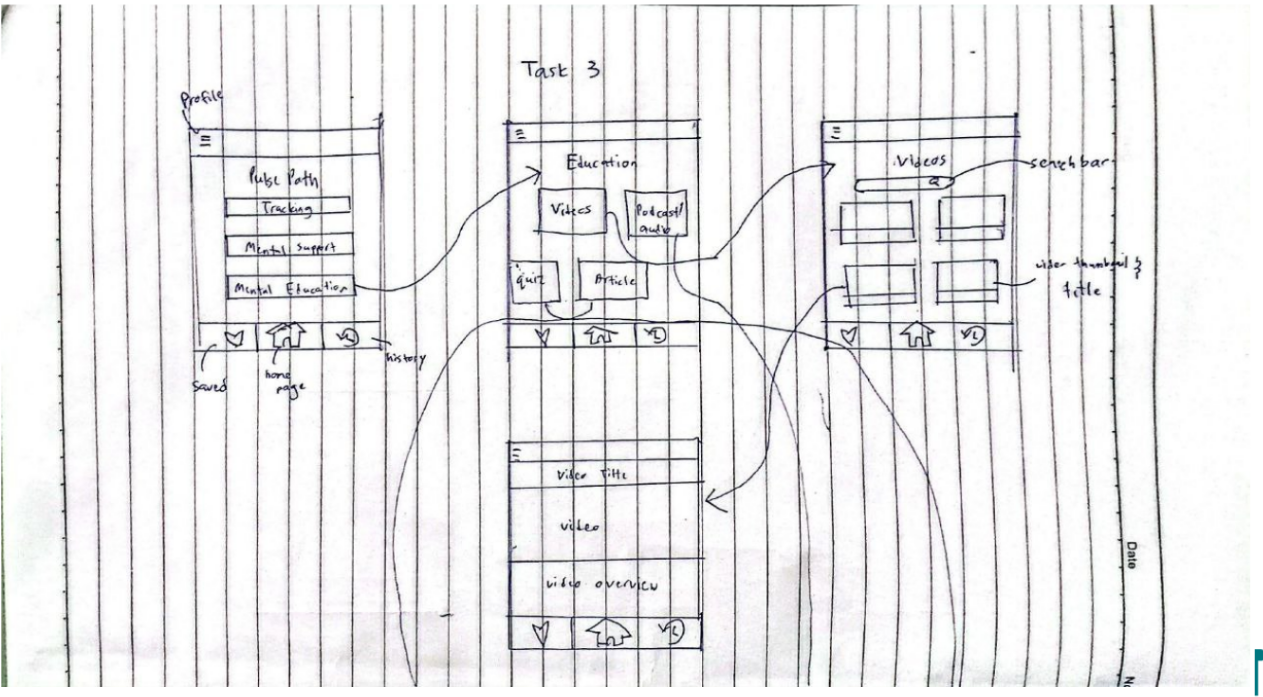 Task 3
Profile
Pulse Path
Tracking
Mental Support
Mental Education
Saved
home
page
history
Education
Videos
Podcast/
audio
quiz
Article
Videos
search bar
video thumbnail &
title
Video Title
video
video overview
Date
No